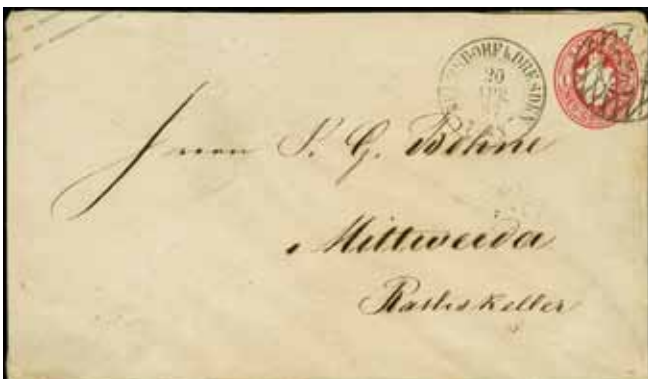 DRESDEN
20
APR
Herrn P. G. Böhme
Mittweida
Rathskeller